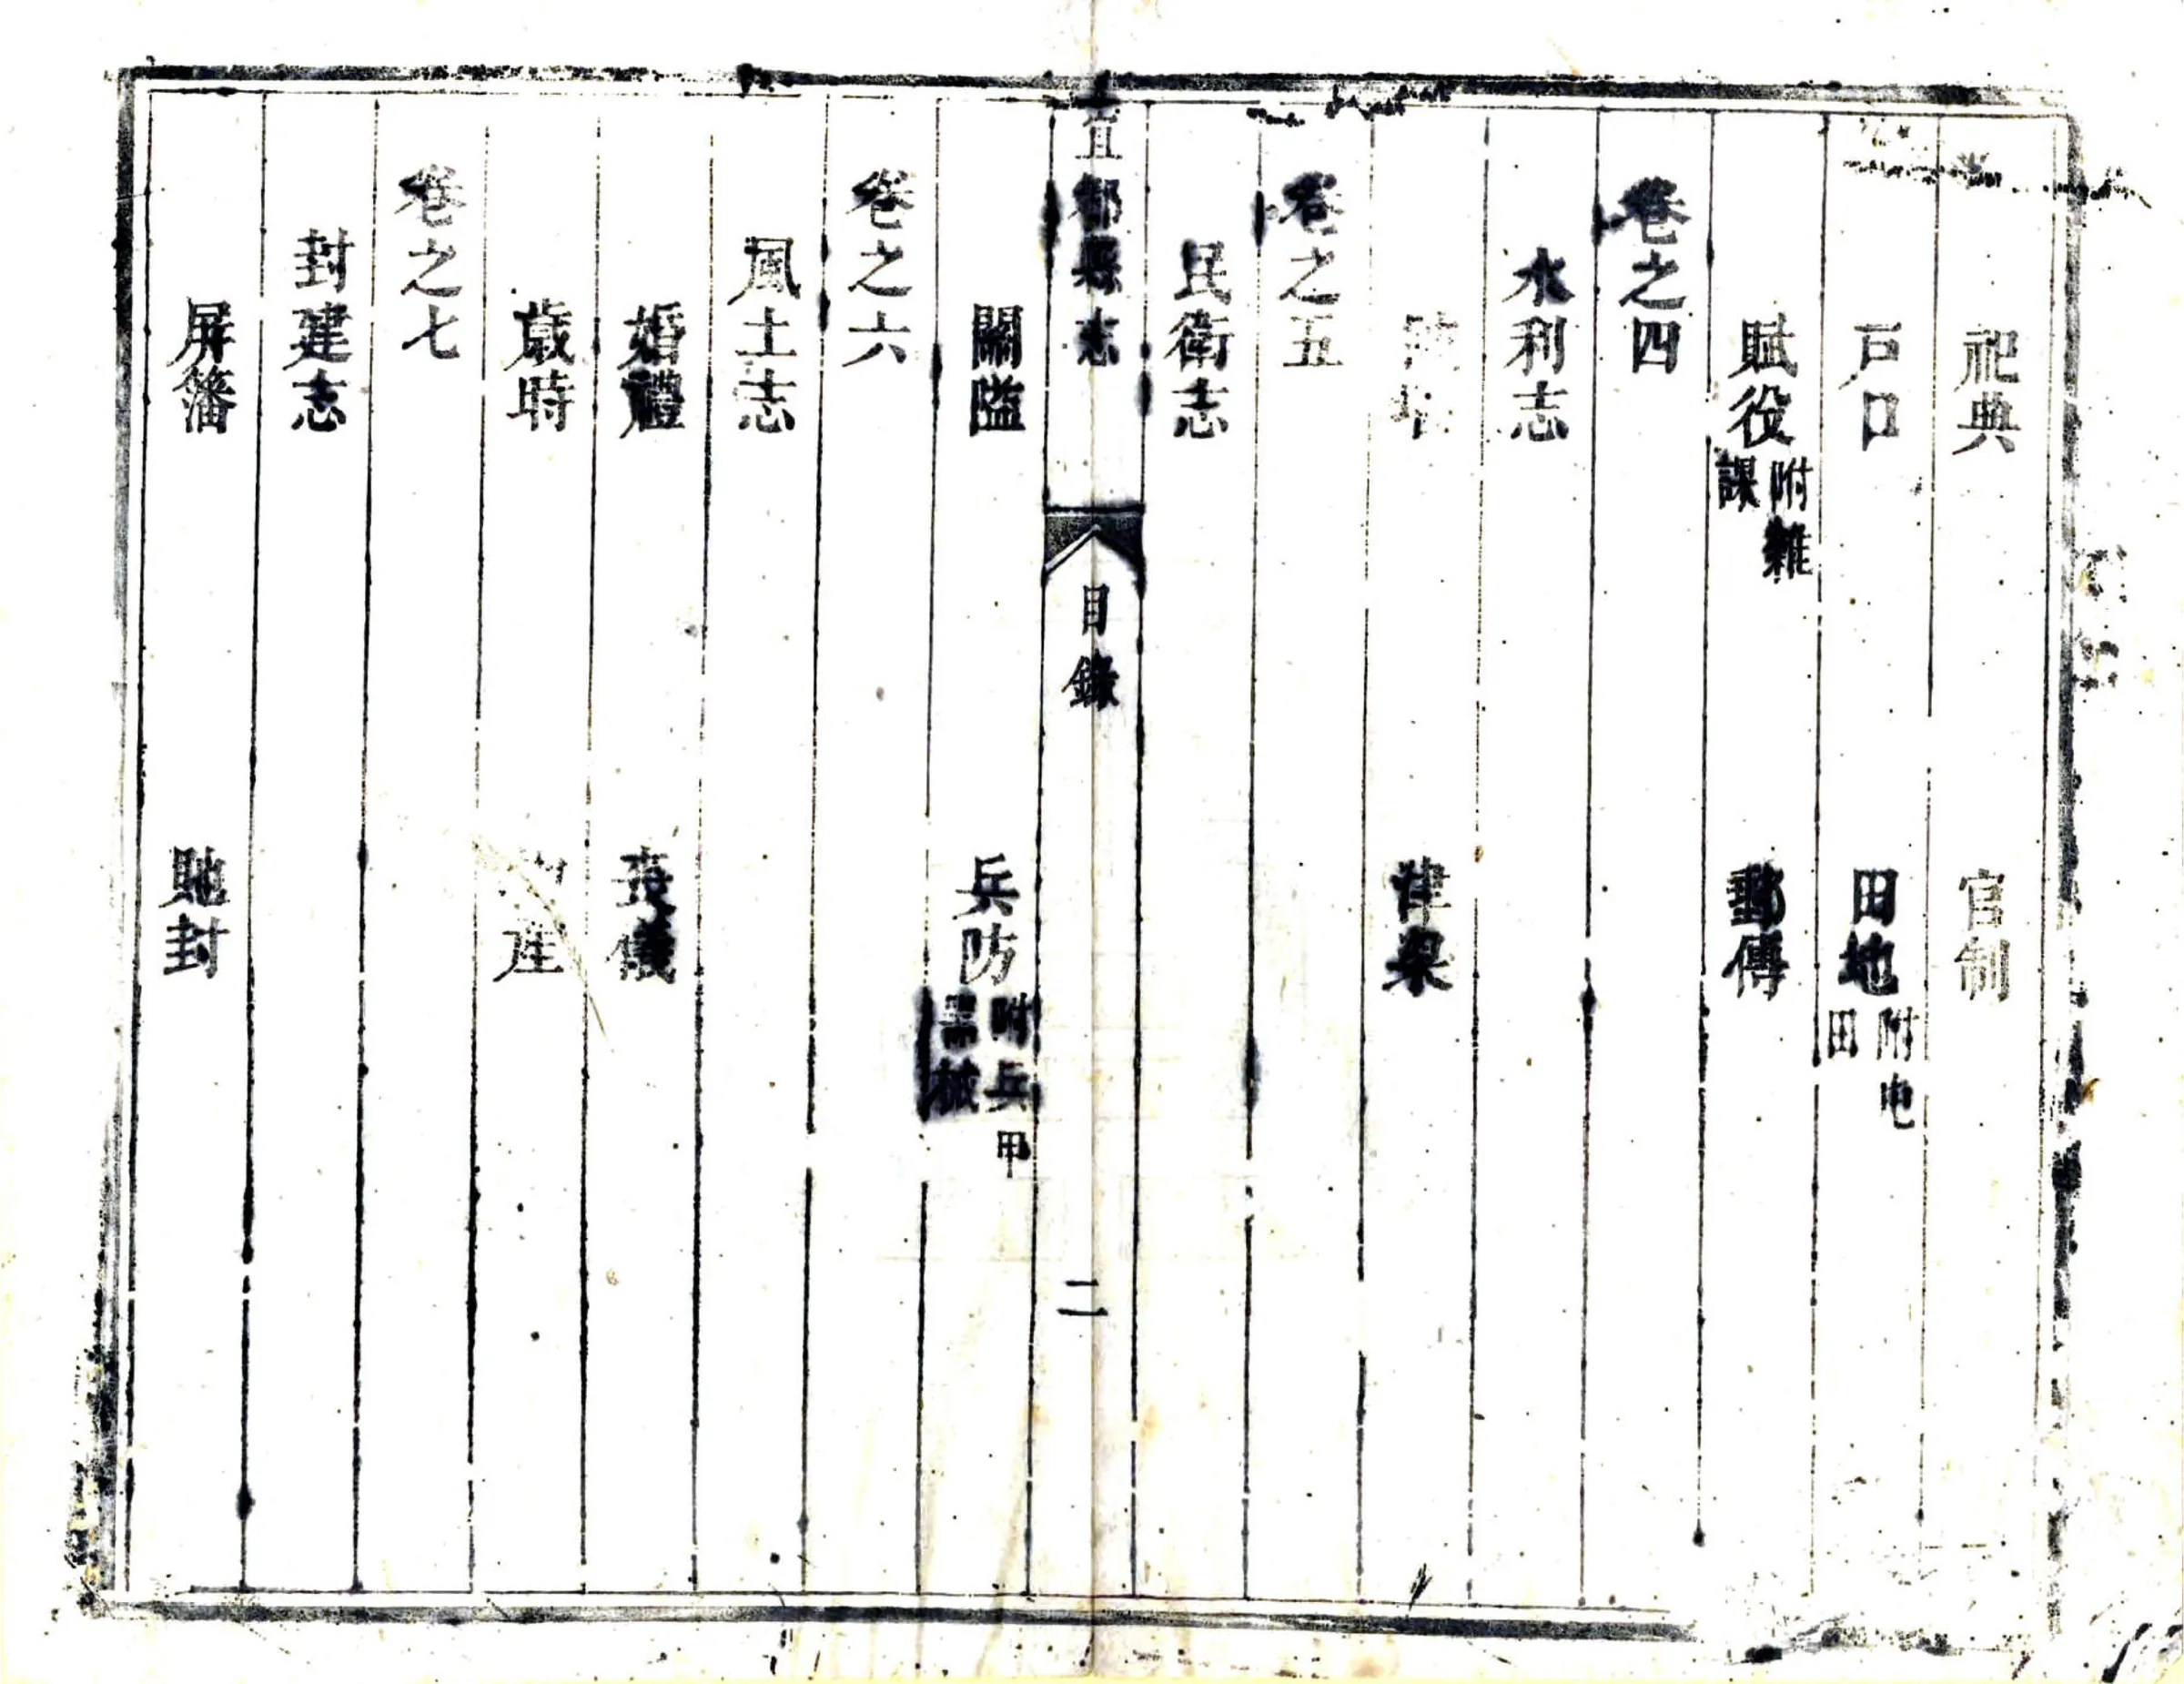 祀典　官制
戸口　田地附屯田
賦役附雜課　郵傳
卷之四
水利志
津梁
卷之五
民衛志
宜都縣志　目錄　二
關隘　兵防附兵甲器械
卷之六
風土志
婚禮　喪儀
歲時　產
卷之七
封建志
屏籓　貤封